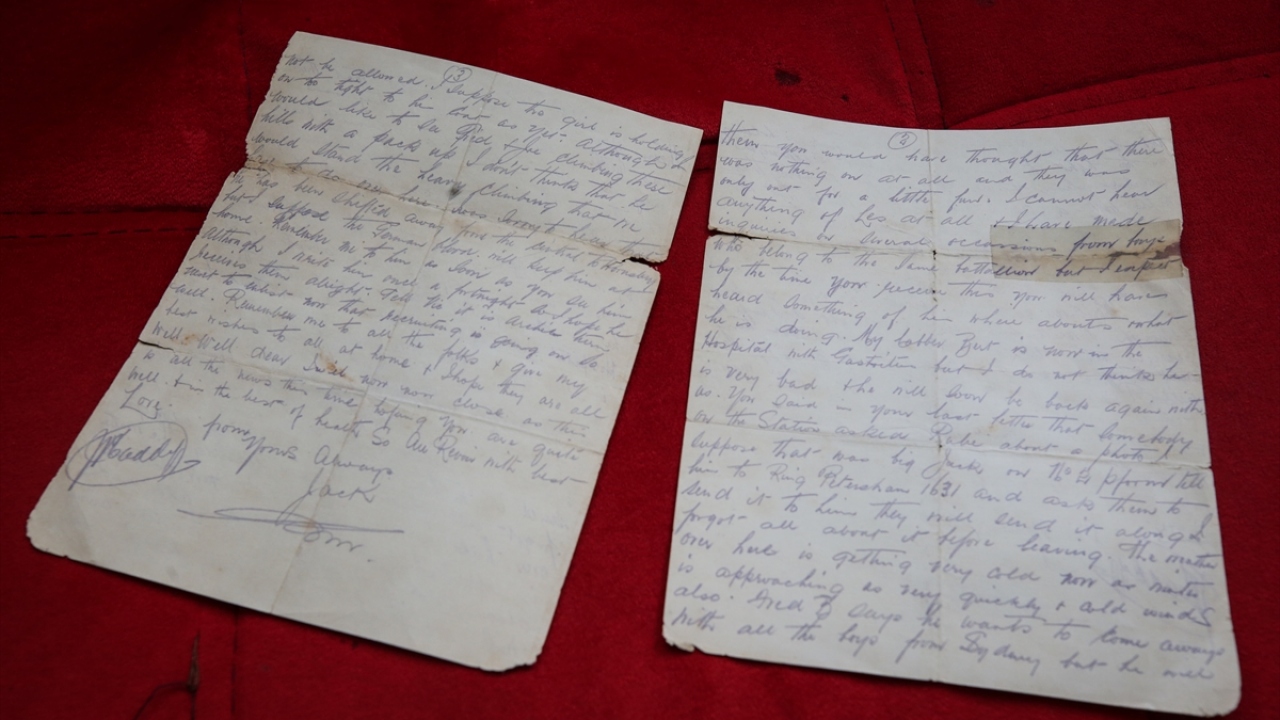 (3)
not be allowed. I suppose the girl is holding
on to tight to be lost as yet. Although I
would like to see Fred climbing these
hills with a pack up I don't think that he
would stand the heavy climbing that we
have to do over here. was sorry to hear
has been shifted away from the Central to Hornsby
but I suppose the German blood will keep him at
home. Remember me to him as soon as you see him
Although I write him once a fortnight & I hope he
receives them alright. Tell him it is time
to enlist now that recruiting is going on so
well. Remember me to all the folks & give my
best wishes to all at home & I hope they are all
well. Well dear I will now close as this
is all the news this time hoping you are quite
well & in the best of health So Au Revoir with best
Love.
from
Yours Always
Jack
(2)
them you would have thought that there
was nothing on at all and they was
only out for a little fun. I cannot hear
anything of Les at all & I have made
inquiries on several occasions from boys
who belong to the same battallion but I expect
by the time you receive this you will have
heard something of his where abouts & what
he is doing. My cobber Bert is now in the
Hospital with Gastritis but I do not think he
is very bad & he will soon be back again with
us. You said in your last letter that somebody
on the Station asked Rube about a photo I
suppose that was big Jack on No 4 pform tell
him to Ring Petersham 1631 and ask them to
send it to him they will send it along I
forgot all about it before leaving. The weather
over here is getting very cold now as winter
is approaching us very quickly & cold winds
also. Fred B says he wants to come away
with all the boys from Sydney but he will